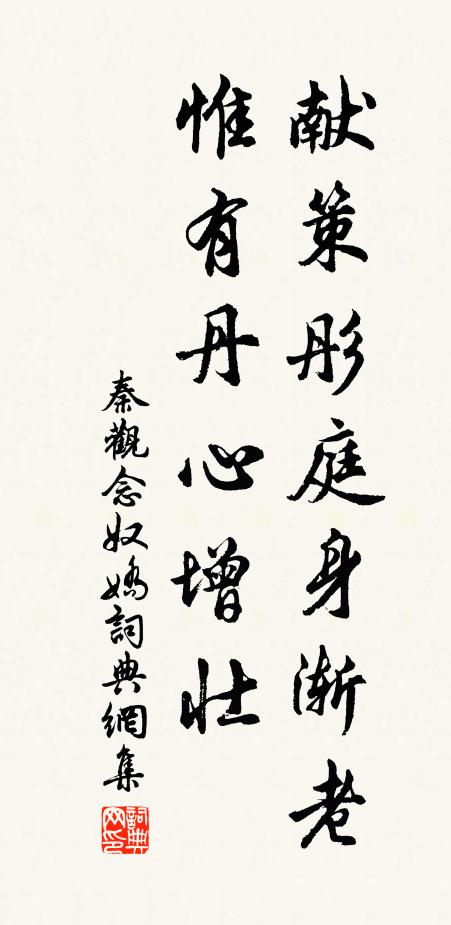 献策彤庭身渐老
惟有丹心增壮
秦觀念奴嬌詞典網集
詞典網印